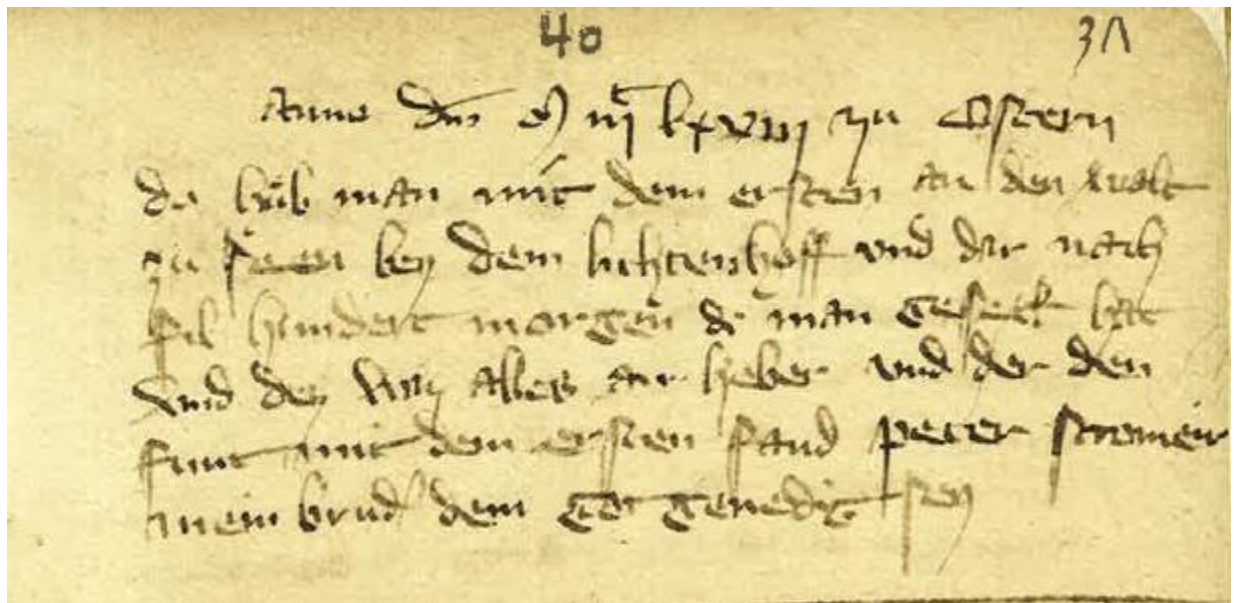 40 31
Anno dm M iijc lxviij zu Ostern
do hub man mit dem ersten an den walt
zu seen bey dem lichtenhoff und dar nach
fil hundert morgen do man geseet hat
und dez alles an heber und der den
funt mit dem ersten fand peter stromeir
mein brud dem got genedig sey